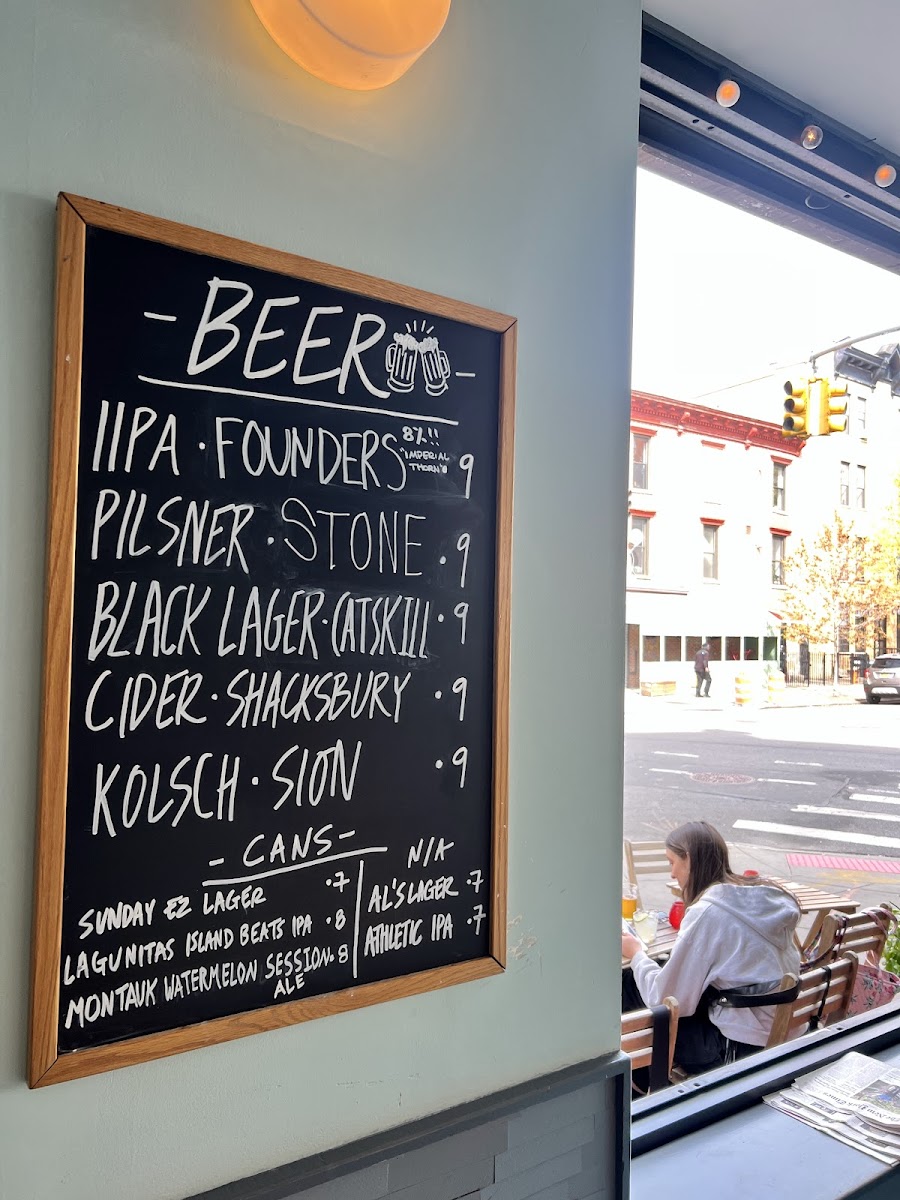 - BEER -
IIPA · FOUNDERS 8%!! "IMPERIAL THORN" 9
PILSNER · STONE · 9
BLACK LAGER · CATSKILL · 9
CIDER · SHACKSBURY · 9
KOLSCH · SION · 9
- CANS -
SUNDAY EZ LAGER · 7
LAGUNITAS ISLAND BEATS IPA · 8
MONTAUK WATERMELON SESSION · 8
ALE
N/A
AL'S LAGER · 7
ATHLETIC IPA · 7
The New York Times